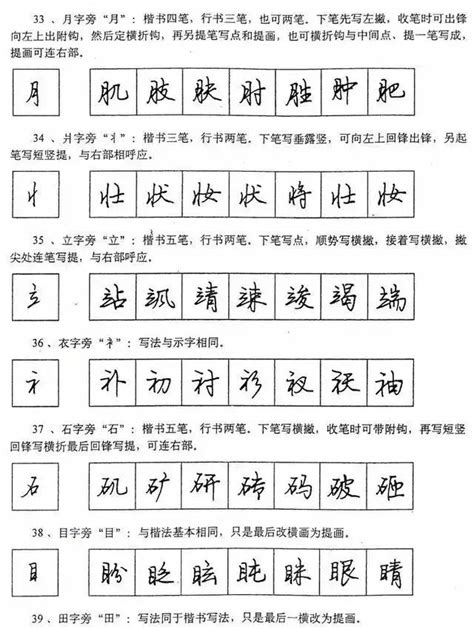 33、月字旁“月”：楷书四笔，行书三笔，也可两笔。下笔先写左撇，收笔时可出锋
向左上出附钩，然后定横折钩，再另提笔写点和提画，也可横折钩与中间点、提一笔写成，
提画可连右部。
月 肌 肢 肤 肘 胜 肿 肥
34、爿字旁“丬”：楷书三笔，行书两笔。下笔写垂露竖，可向左上回锋出锋，另起
笔写短竖提，与右部相呼应。
丬 壮 状 妆 状 将 壮 妆
35、立字旁“立”：楷书五笔，行书两笔。下笔写点，顺势写横撇，接着写横撇，撇
尖处连笔写提，与右部呼应。
立 站 飒 靖 竦 竣 竭 端
36、衣字旁“衤”：写法与示字相同。
衤 补 初 衬 衫 衩 袄 袖
37、石字旁“石”：楷书五笔，行书两笔。下笔写横撇，收笔时可带附钩，再写短竖
回锋写横折最后回锋写提，可连右部。
石 矶 矿 研 砖 码 破 砸
38、目字旁“目”：与楷法基本相同，只是最后改横画为提画。
目 盼 眨 眩 盹 眯 眼 睛
39、田字旁“田”：写法同于楷书写法，只是最后一横改为提画。